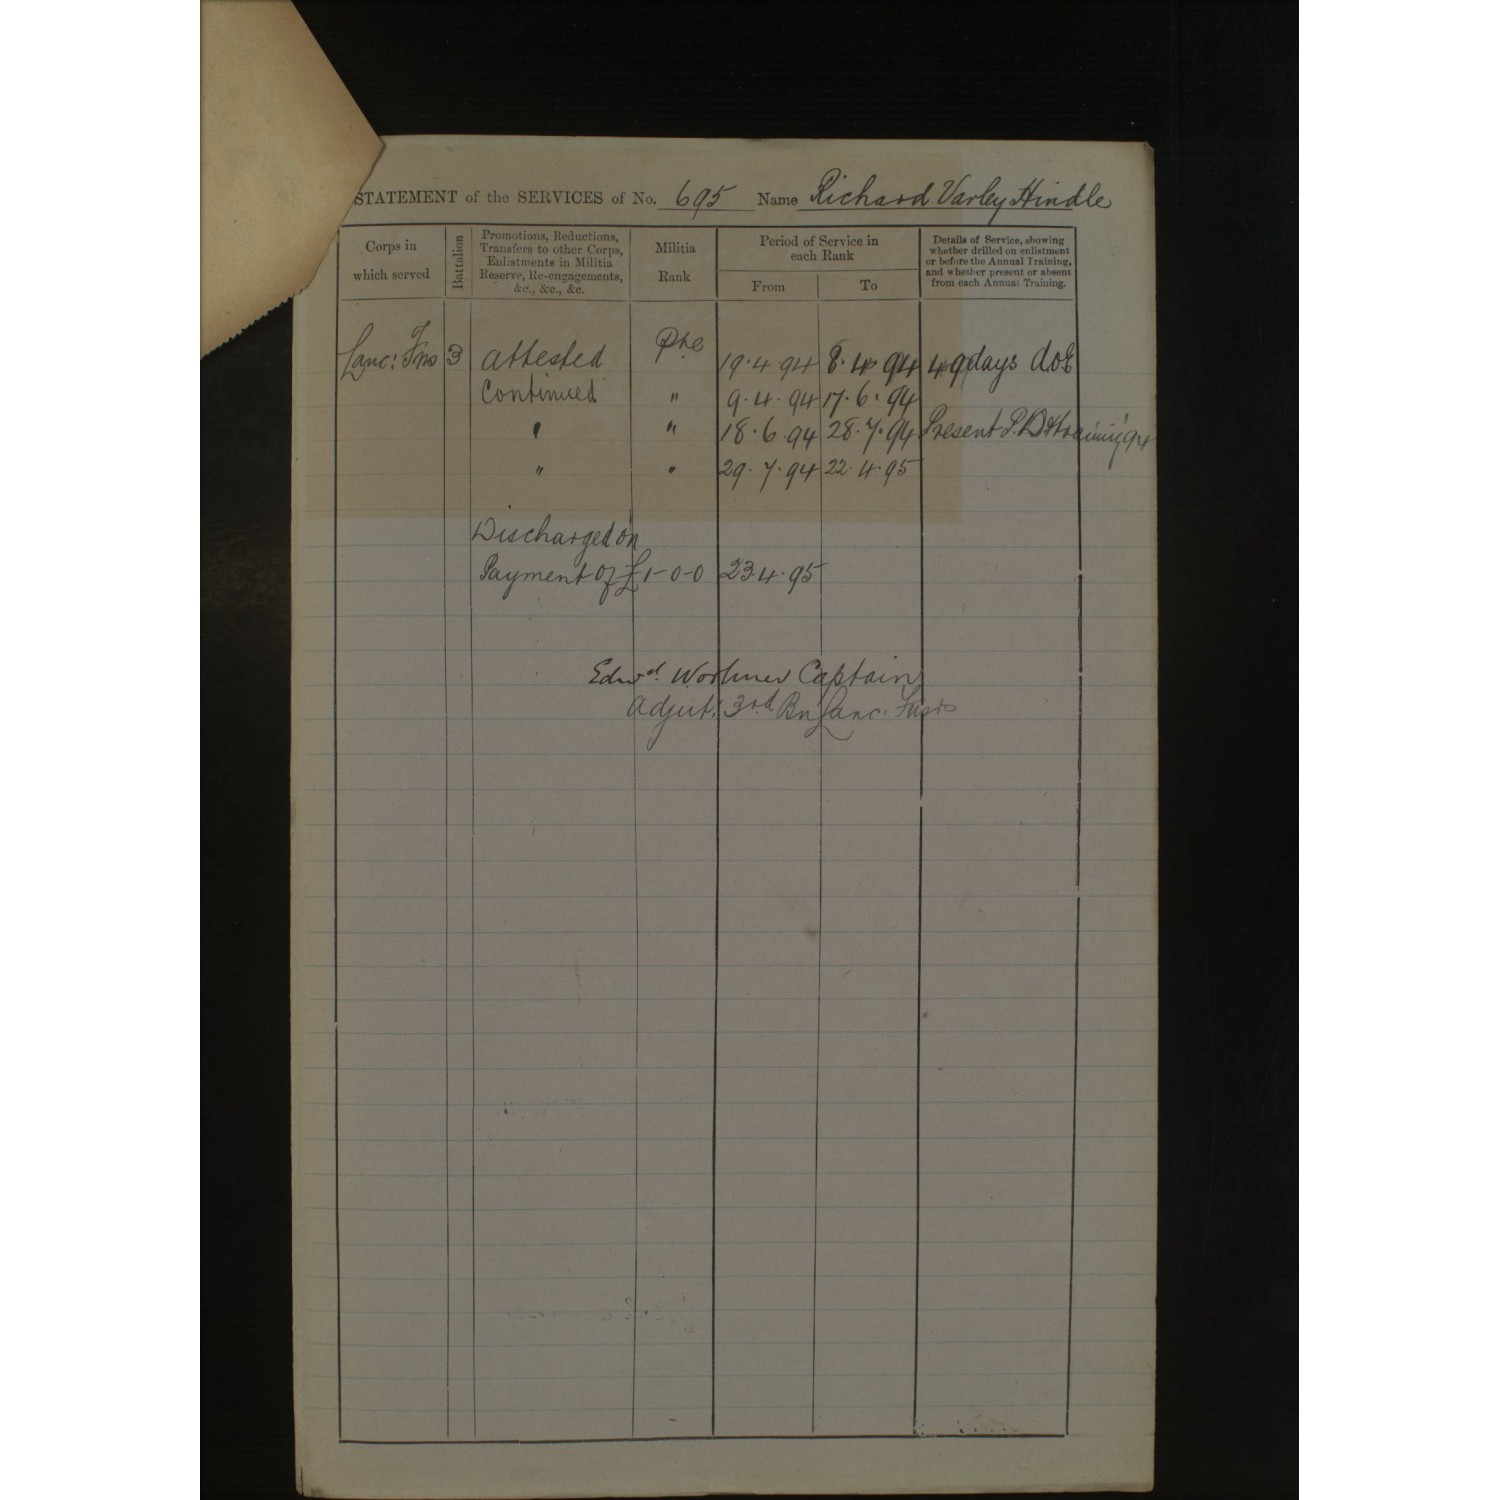 STATEMENT of the SERVICES of No. 695 Name Richard Varley Hindle
Corps in
which served
Battalion
Promotions, Reductions,
Transfers to other Corps,
Enlistments in Militia
Reserve, Re-engagements,
&c., &c., &c.
Militia
Rank
Period of Service in
each Rank
From To
Details of Service, showing
whether drilled on enlistment
or before the Annual Training,
and whether present or absent
from each Annual Training.
Lanc: Fus 3 Attested Pte 19.4.94 8.4.94 49 days doE
Continued " 9.4.94 17.6.94
" " 18.6.94 28.7.94 Present training 94
" " 29.7.94 22.4.95
Discharged on
Payment of £1-0-0 23.4.95
Edwd. Captain
Adjut: 3rd Bn Lanc: Fusrs